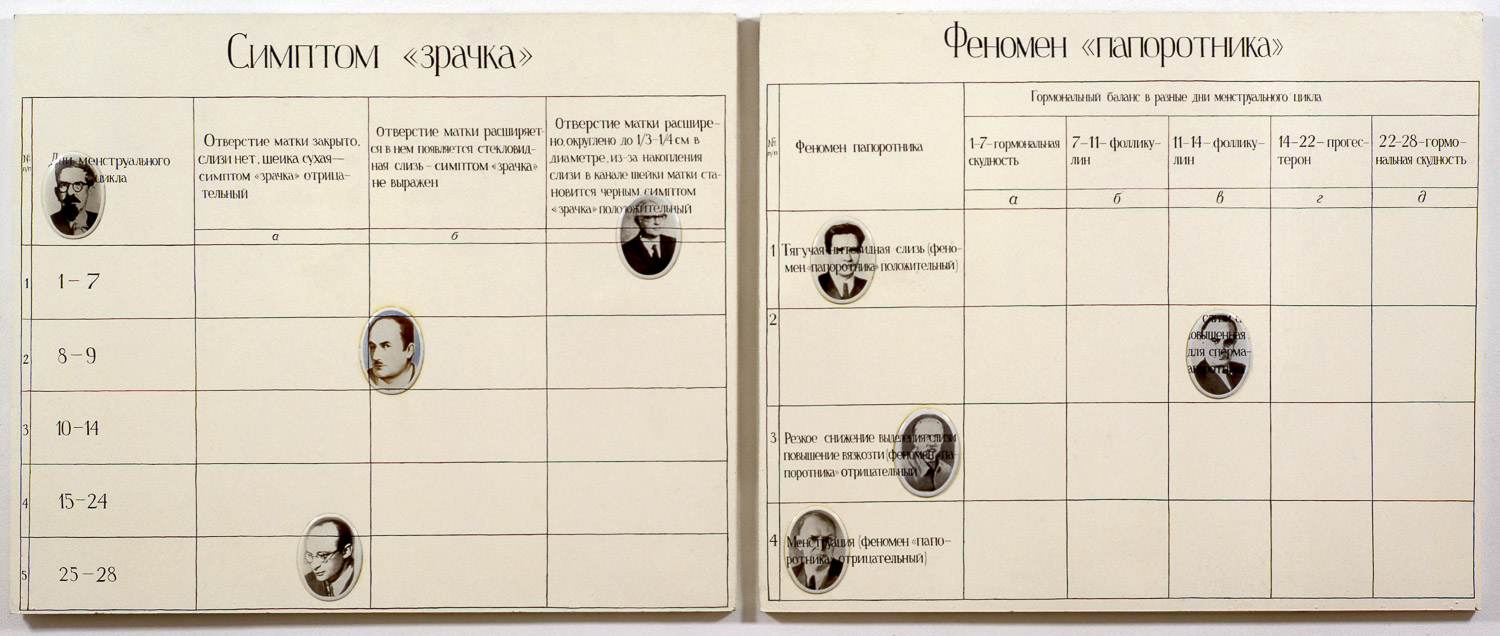 Симптом «зрачка»
№
п/п
Дни менструального
цикла
Отверстие матки закрыто,
слизи нет, шейка сухая—
симптом «зрачка» отрица-
тельный
Отверстие матки расширяет-
ся в нем появляется стекловид-
ная слизь – симптом «зрачка»
не выражен
Отверстие матки расшире-
но, округлено до 1/3–1/4 см в
диаметре, из-за накопления
слизи в канале шейки матки ста-
новится черным, симптом
«зрачка» положительный
а
б
1 1–7
2 8–9
3 10–14
4 15–24
5 25–28
Феномен «папоротника»
№
п/п
Феномен папоротника
Гормональный баланс в разные дни менструального цикла
1–7–гормональная
скудность
7–11– фоллику-
лин
11–14– фоллику-
лин
14–22– прогес-
терон
22–28–гормо-
нальная скудность
а
б
в
г
д
1 Тягучая нитевидная слизь (фено-
мен «папоротника» положительный)
2
слизи
для сперма-
3 Резкое снижение выделения слизи
повышение вязкозти (феномен «па-
поротника» отрицательный
4 Менструация (феномен «папо-
ротника» отрицательный)